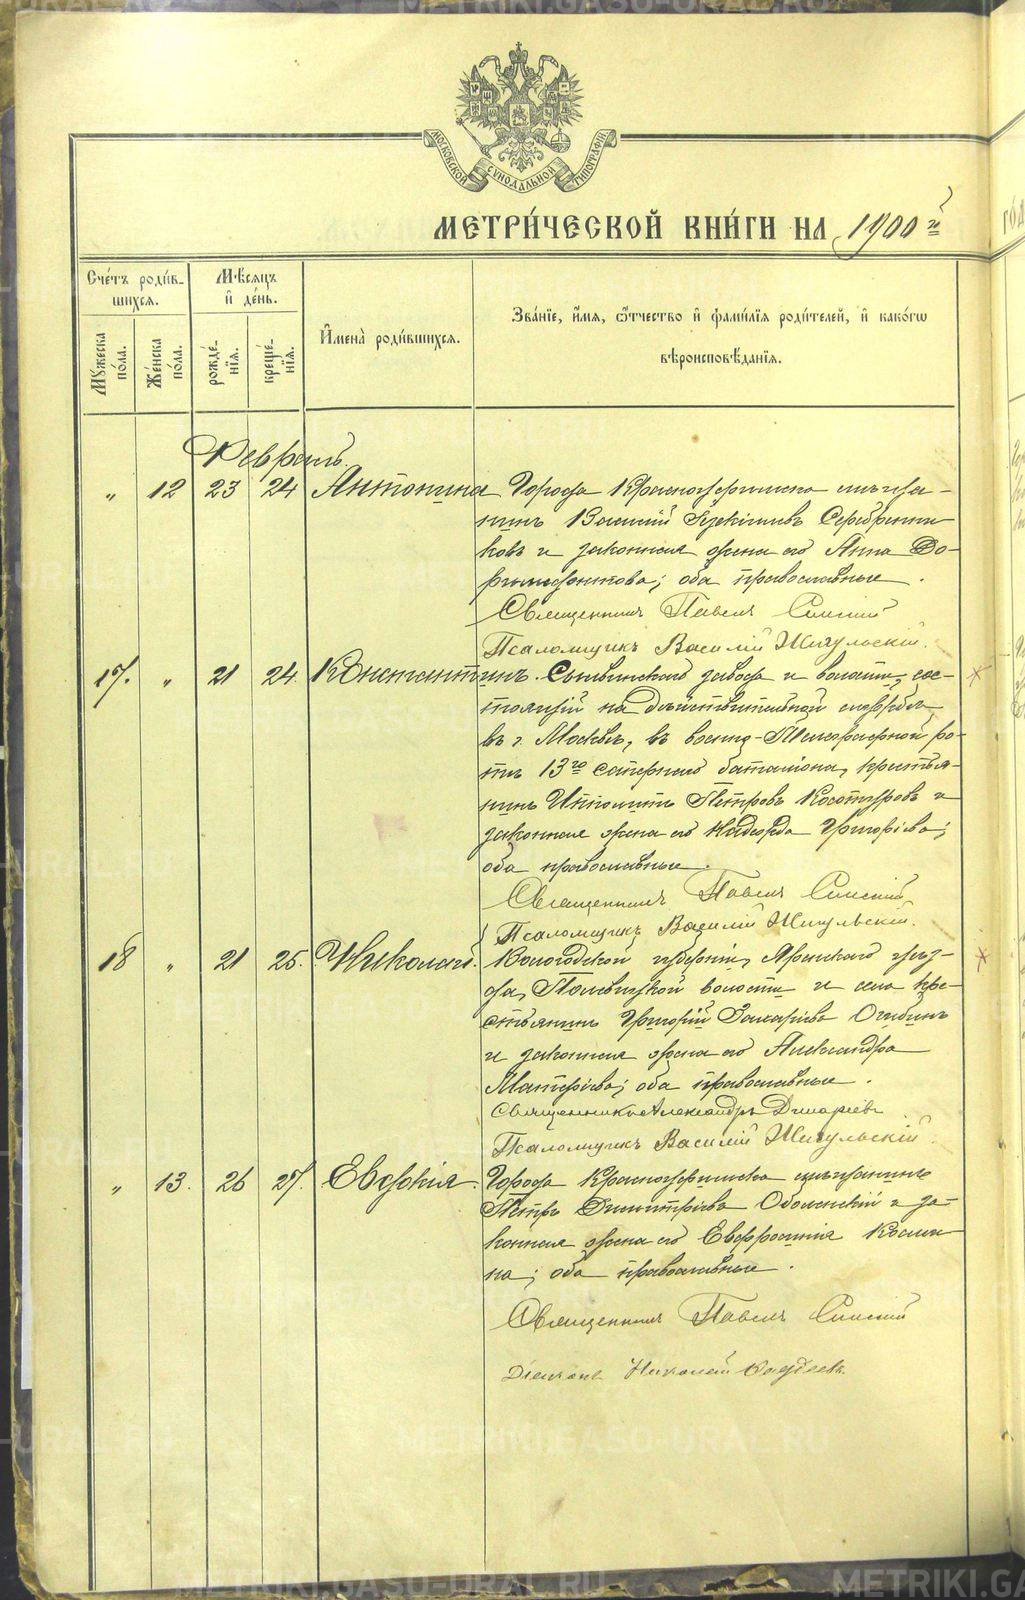 METRIKI.GASO-URAL.RU
МОСКОВСКОЙ СѴНОДАЛЬНОЙ ТИПОГРАФІИ
МЕТРИ́ЧЕСКОЙ КНИ́ГИ НА 1900 й
Сче́тъ роди́вшихся.
Мꙋ́жеска по́ла.
Же́нска по́ла.
Мѣ́сяцъ и҆ де́нь.
рожде́нїя.
креще́нїя.
И҆мена̀ роди́вшихся.
Зва́нїе, и҆́мя, ѻ҆́тчество и҆ фами́лїя роди́телей, и҆ како́гѡ
вѣроисповѣ́данїя.
Февраль.
„ 12 23 24 Антонина Города Красноуфимска мѣща-
нинъ Василій Серебренни-
ковъ и законная жена его Анна До-
оба православные.
Священникъ Павелъ
Псаломщикъ Василій Шигульскій.
17. „ 21 24. Константинъ. Сывинскаго завода и волости, сос-
тоящій на дѣйствительной службѣ
въ г. Москвѣ, въ военно-Телеграфной ро-
тѣ 13го сапернаго баталіона, крестья-
нинъ Ипполитъ Петровъ Косотуровъ и
законная жена его Надежда Григорьева;
оба православные.
Священникъ Павелъ
Псаломщикъ Василій Шигульскій.
18 „ 21 25. Николай. Вологодской губерніи, Яренскаго уѣз-
да, волости и села кре-
стьянинъ Григорій Захаріевъ
и законная жена его Александра
Матѳіева; оба православные.
Священникъ Александръ
Псаломщикъ Василій Шигульскій.
„ 13. 26 27. Евдокія. Города Красноуфимска мѣщанинъ
Петръ Димитріевъ Оболенскій и за-
конная жена его Евфросинія Косми-
на; оба православные.
Священникъ Павелъ
Діаконъ Николай
METRIKI.GASO-URAL.RU
METRIKI.GASO-URAL.RU